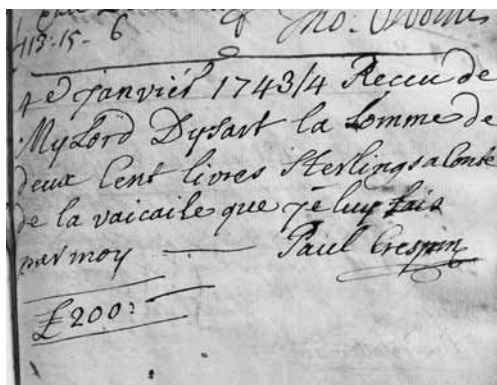 113-15-6 & Tho:
4e Janvier 1743/4 Receu de
My Lord Dysart la Somme de
deux Cent livres Sterlings a Conte
de la vaicaile que je luy fais
par moy — Paul Crespin
£200:—